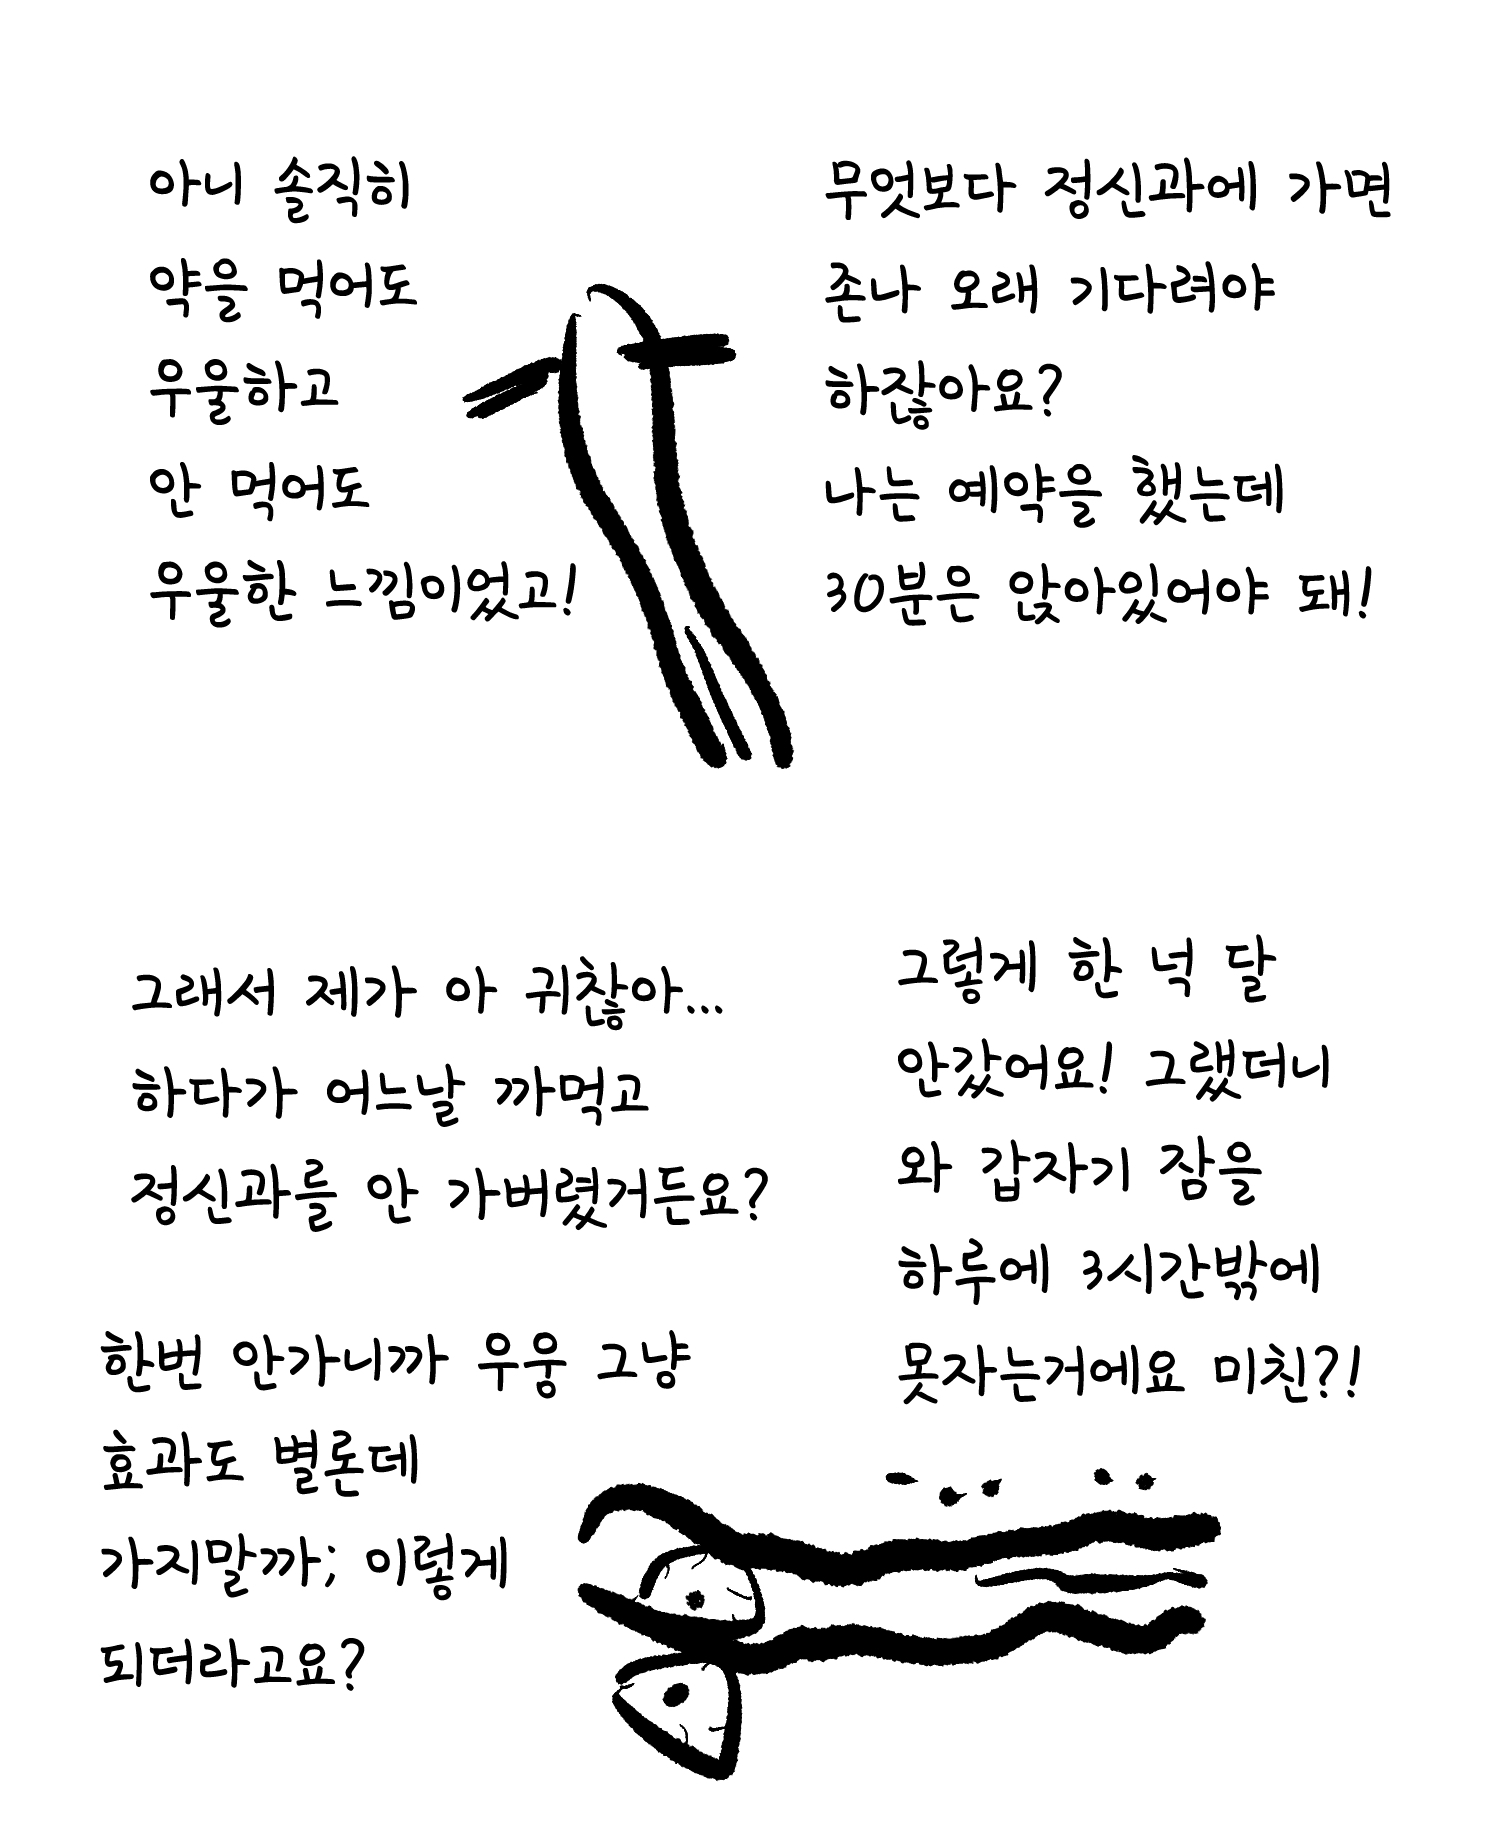 아니 솔직히
약을 먹어도
우울하고
안 먹어도
우울한 느낌이었고!
무엇보다 정신과에 가면
존나 오래 기다려야
하잖아요?
나는 예약을 했는데
30분은 앉아있어야 돼!
그래서 제가 아 귀찮아...
하다가 어느날 까먹고
정신과를 안 가버렸거든요?
한번 안가니까 우웅 그냥
효과도 별론데
가지말까; 이렇게
되더라고요?
그렇게 한 넉 달
안갔어요! 그랬더니
와 갑자기 잠을
하루에 3시간밖에
못자는거에요 미친?!